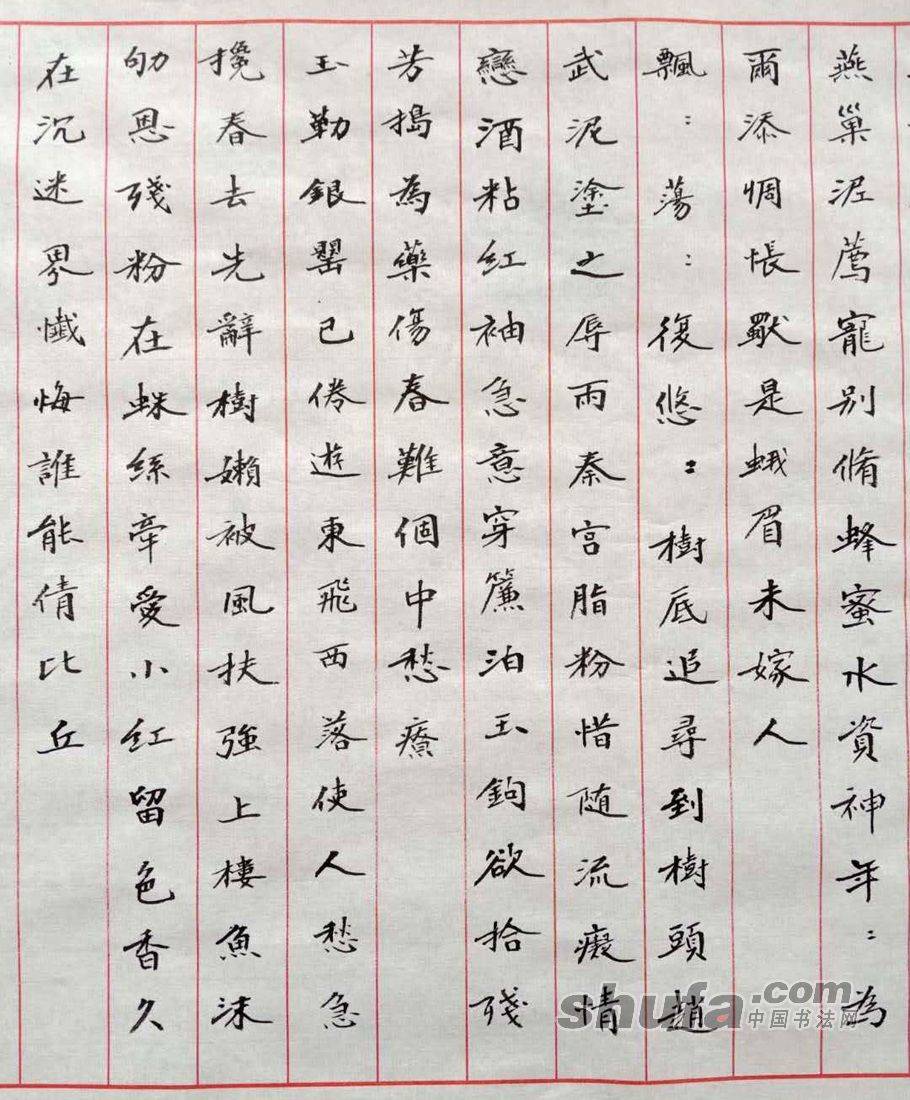 燕巢泥薦寵别脩蜂蜜水資神年:為
爾添惆悵獨是蛾眉未嫁人
飄:蕩:復悠:樹底追尋到樹頭趙
武泥塗之辱雨秦宮脂粉惜随流癡情
戀酒粘紅袖急意穿簾泊玉鉤欲拾殘
芳搗為藥傷春難個中愁療
玉勒銀罌已倦遊東飛西落使人愁急
攙春去先辭樹嬾被風扶強上樓魚沫
劬恩殘粉在蛛絲牽愛小紅留色香久
在沉迷界懺悔誰能倩比丘
shufa.com
中国书法网